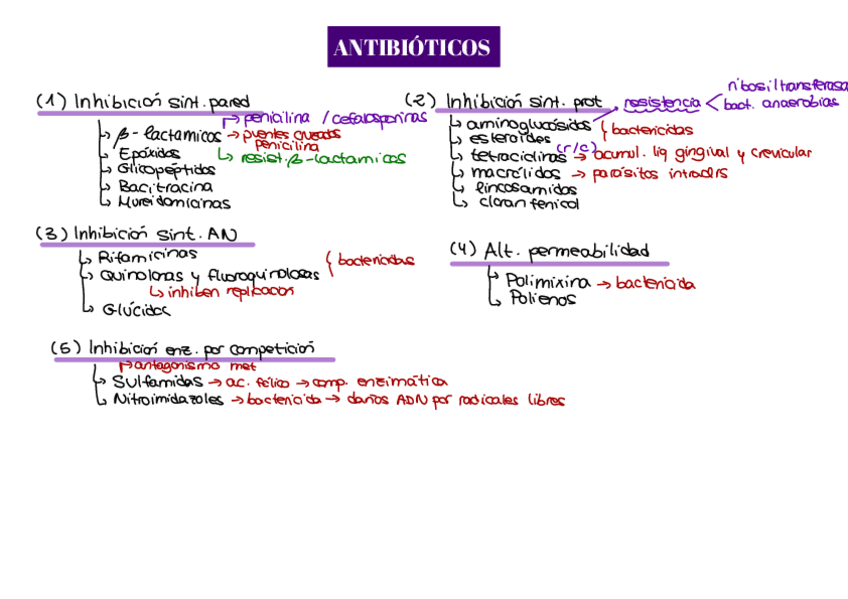 ANTIBIÓTICOS
(1) Inhibición sint. pared
penicilina / cefalosporinas
β-lactamicos → puentes cruzados
penicilina
resist. β-lactamicos
Epóxidos
Glicopéptidos
Bacitracina
Mureidomicinas
(2) Inhibición sint. prot
resistencia
ribosiltransferasa
bact. anaerobias
aminoglucósidos
esteroides
bactericidas
(r/c)
tetraciclinas → acumul. liq gingival y crevicular
macrólidos → parásitos intracels
lincosamidas
cloranfenicol
(3) Inhibición sint. AN
Rifamicinas
Quinolonas y fluoroquinolonas
bactericidas
inhiben replicacion
Glúcidos
(4) Alt. permeabilidad
Polimixina → bactericida
Polienos
(5) Inhibición enz. por competición
antagonismo met
Sulfamidas → ac. fólico → comp. enzimática
Nitroimidazoles → bactericida → daños ADN por radicales libres